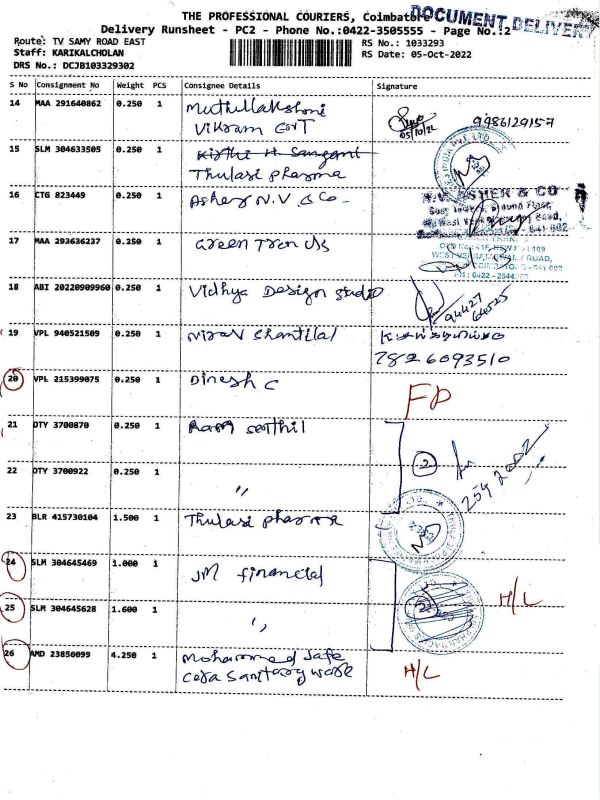 THE PROFESSIONAL COURIERS, Coimbatore
DOCUMENT DELIVERY
Delivery Runsheet - PC2 - Phone No.:0422-3505555 - Page No.:2
Route: TV SAMY ROAD EAST
RS No.: 1033293
Staff: KARIKALCHOLAN
RS Date: 05-Oct-2022
DRS No.: DCJB103329302
S No Consignment No Weight PCS Consignee Details Signature
14 MAA 291640862 0.250 1 Muthullakshmi
Vikram GVT
05/10/22
9986129157
15 SLM 304633505 0.250 1
Thulasi pharma
16 CTG 823449 0.250 1 Asher N.V & Co -
N.V. ASHER & CO
17 MAA 293636237 0.250 1 Green Trends
18 ABI 20220909960 0.250 1 Vidhya Design Studio
94427
64525
19 VPL 940521509 0.250 1 Nirav Shantilal
7826093510
20 VPL 215399075 0.250 1 Dinesh C
FD
21 DTY 3700870 0.250 1 Ram Senthil
2
22 DTY 3700922 0.250 1 "
23 BLR 415730104 1.500 1 Thulasi pharma
24 SLM 304645469 1.000 1 JM financial
25 SLM 304645628 1.600 1 "
H/L
26 AMD 23856099 4.250 1 Mohammed Safe
Cera Sanitary work
H/L